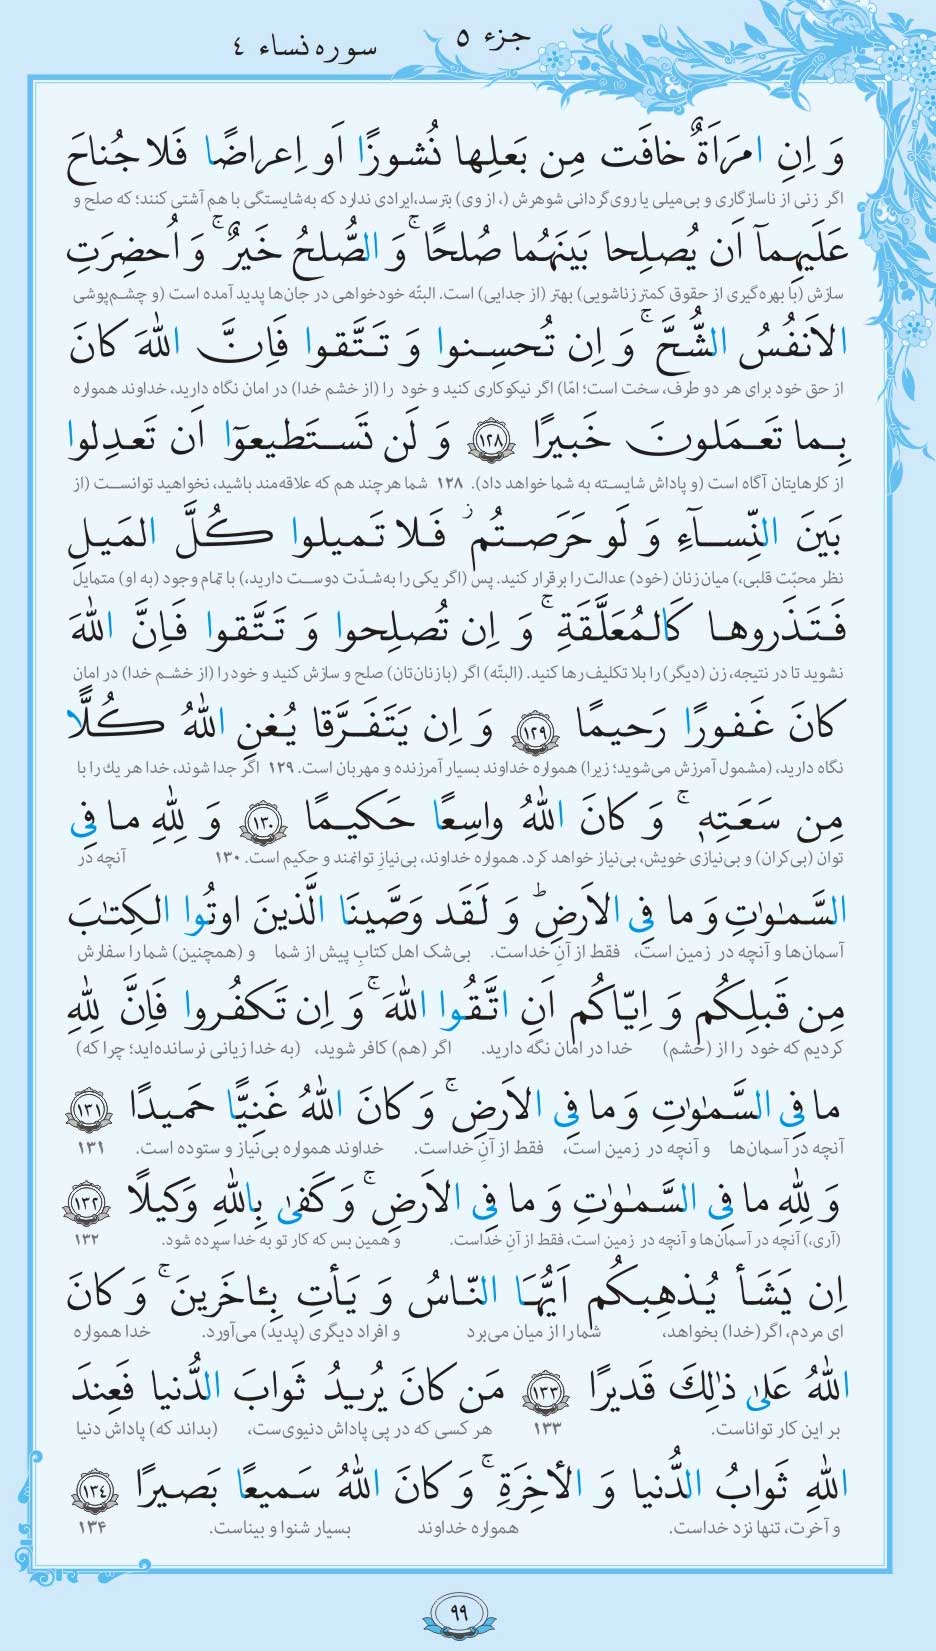 جزء ۵
سوره نساء ۴
وَ اِنِ امرَاَةٌ خافَت مِن بَعلِها نُشوزًا اَو اِعراضًا فَلا جُناحَ
اگر زنی از ناسازگاری و بی‌میلی یا روی‌گردانی شوهرش (، از وی) بترسد، ایرادی ندارد که به‌شایستگی با هم آشتی کنند؛ که صلح و
عَلَيهِمآ اَن يُصلِحا بَينَهُما صُلحًا ۚ وَ الصُّلحُ خَيرٌ ۗ وَ اُحضِرَتِ
سازش (با بهره‌گیری از حقوق کمتر زناشویی) بهتر (از جدایی) است. البتّه خودخواهی در جان‌ها پدید آمده است (و چشم‌پوشی
الاَنفُسُ الشُّحَّ ۚ وَ اِن تُحسِنوا وَ تَتَّقوا فَاِنَّ اللهَ كانَ
از حق خود برای هر دو طرف، سخت است؛ امّا) اگر نیکوکاری کنید و خود را (از خشم خدا) در امان نگاه دارید، خداوند همواره
بِما تَعمَلونَ خَبيرًا ۱۲۸ وَ لَن تَستَطيعوٓا اَن تَعدِلوا
از کارهایتان آگاه است (و پاداش شایسته به شما خواهد داد). ۱۲۸ شما هرچند هم که علاقه‌مند باشید، نخواهید توانست (از
بَينَ النِّسآءِ وَ لَو حَرَصتُم ۖ فَلا تَميلوا كُلَّ المَيلِ
نظر محبّت قلبی،) میان زنان (خود) عدالت را برقرار کنید. پس (اگر یکی را به‌شدّت دوست دارید،) با تمام وجود (به او) متمایل
فَتَذَروها كَالمُعَلَّقَةِ ۚ وَ اِن تُصلِحوا وَ تَتَّقوا فَاِنَّ اللهَ
نشوید تا در نتیجه، زن (دیگر) را بلا تکلیف رها کنید. (البتّه) اگر (با زنان‌تان) صلح و سازش کنید و خود را (از خشم خدا) در امان
كانَ غَفورًا رَحيمًا ۱۲۹ وَ اِن يَتَفَرَّقا يُغنِ اللهُ كُلًّا
نگاه دارید، (مشمول آمرزش می‌شوید؛ زیرا) همواره خداوند بسیار آمرزنده و مهربان است. ۱۲۹ اگر جدا شوند، خدا هر یك را با
مِن سَعَتِهٖ ۚ وَ كانَ اللهُ واسِعًا حَكيمًا ۱۳۰ وَ لِلّٰهِ ما فِی
توان (بی‌کران) و بی‌نیازی خویش، بی‌نیاز خواهد کرد. همواره خداوند، بی‌نیازِ توانمند و حکیم است. ۱۳۰ آنچه در
السَّمٰوٰتِ وَ ما فِی الاَرضِ ۗ وَ لَقَد وَصَّينَا الَّذينَ اوتُوا الكِتٰبَ
آسمان‌ها و آنچه در زمین است، فقط از آنِ خداست. بی‌شک اهل کتابِ پیش از شما و (همچنین) شما را سفارش
مِن قَبلِكُم وَ اِيّاكُم اَنِ اتَّقُوا اللهَ ۚ وَ اِن تَكفُروا فَاِنَّ لِلّٰهِ
کردیم که خود را از (خشم) خدا در امان نگه دارید. اگر (هم) کافر شوید، (به خدا زیانی نرسانده‌اید؛ چرا که)
ما فِی السَّمٰوٰتِ وَ ما فِی الاَرضِ ۚ وَ كانَ اللهُ غَنِيًّا حَميدًا ۱۳۱
آنچه در آسمان‌ها و آنچه در زمین است، فقط از آنِ خداست. خداوند همواره بی‌نیاز و ستوده است. ۱۳۱
وَ لِلّٰهِ ما فِی السَّمٰوٰتِ وَ ما فِی الاَرضِ ۚ وَ كَفیٰ بِاللهِ وَكيلًا ۱۳۲
(آری،) آنچه در آسمان‌ها و آنچه در زمین است، فقط از آنِ خداست. و همین بس که کار تو به خدا سپرده شود. ۱۳۲
اِن يَشَأ يُذهِبكُم اَيُّهَا النّاسُ وَ يَأتِ بِـٔاخَرينَ ۚ وَ كانَ
ای مردم، اگر (خدا) بخواهد، شما را از میان می‌برد و افراد دیگری (پدید) می‌آورد. خدا همواره
اللهُ عَلیٰ ذٰلِكَ قَديرًا ۱۳۳ مَن كانَ يُريدُ ثَوابَ الدُّنيا فَعِندَ
بر این کار تواناست. ۱۳۳ هر کسی که در پی پاداش دنیوی‌ست، (بداند که) پاداش دنیا
اللهِ ثَوابُ الدُّنيا وَ الأخِرَةِ ۚ وَ كانَ اللهُ سَميعًا بَصيرًا ۱۳۴
و آخرت، تنها نزد خداست. همواره خداوند بسیار شنوا و بیناست. ۱۳۴
۹۹